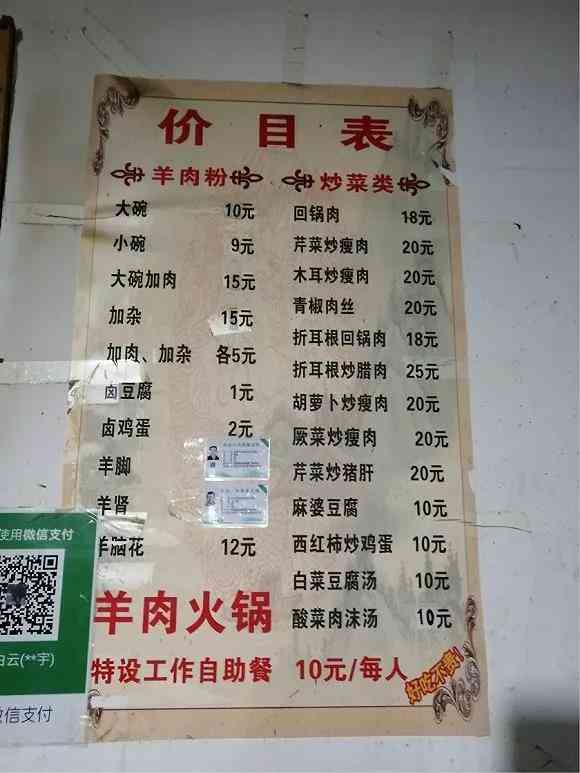 价目表
羊肉粉
大碗 10元
小碗 9元
大碗加肉 15元
加杂 15元
加肉、加杂 各5元
卤豆腐 1元
卤鸡蛋 2元
羊脚
羊肾
羊脑花 12元
炒菜类
回锅肉 18元
芹菜炒瘦肉 20元
木耳炒瘦肉 20元
青椒肉丝 20元
折耳根回锅肉 18元
折耳根炒腊肉 25元
胡萝卜炒瘦肉 20元
厥菜炒瘦肉 20元
芹菜炒猪肝 20元
麻婆豆腐 10元
西红柿炒鸡蛋 10元
白菜豆腐汤 10元
酸菜肉沫汤 10元
羊肉火锅
特设工作自助餐 10元/每人
好吃不贵!
使用微信支付
白云(**宇)
微信支付